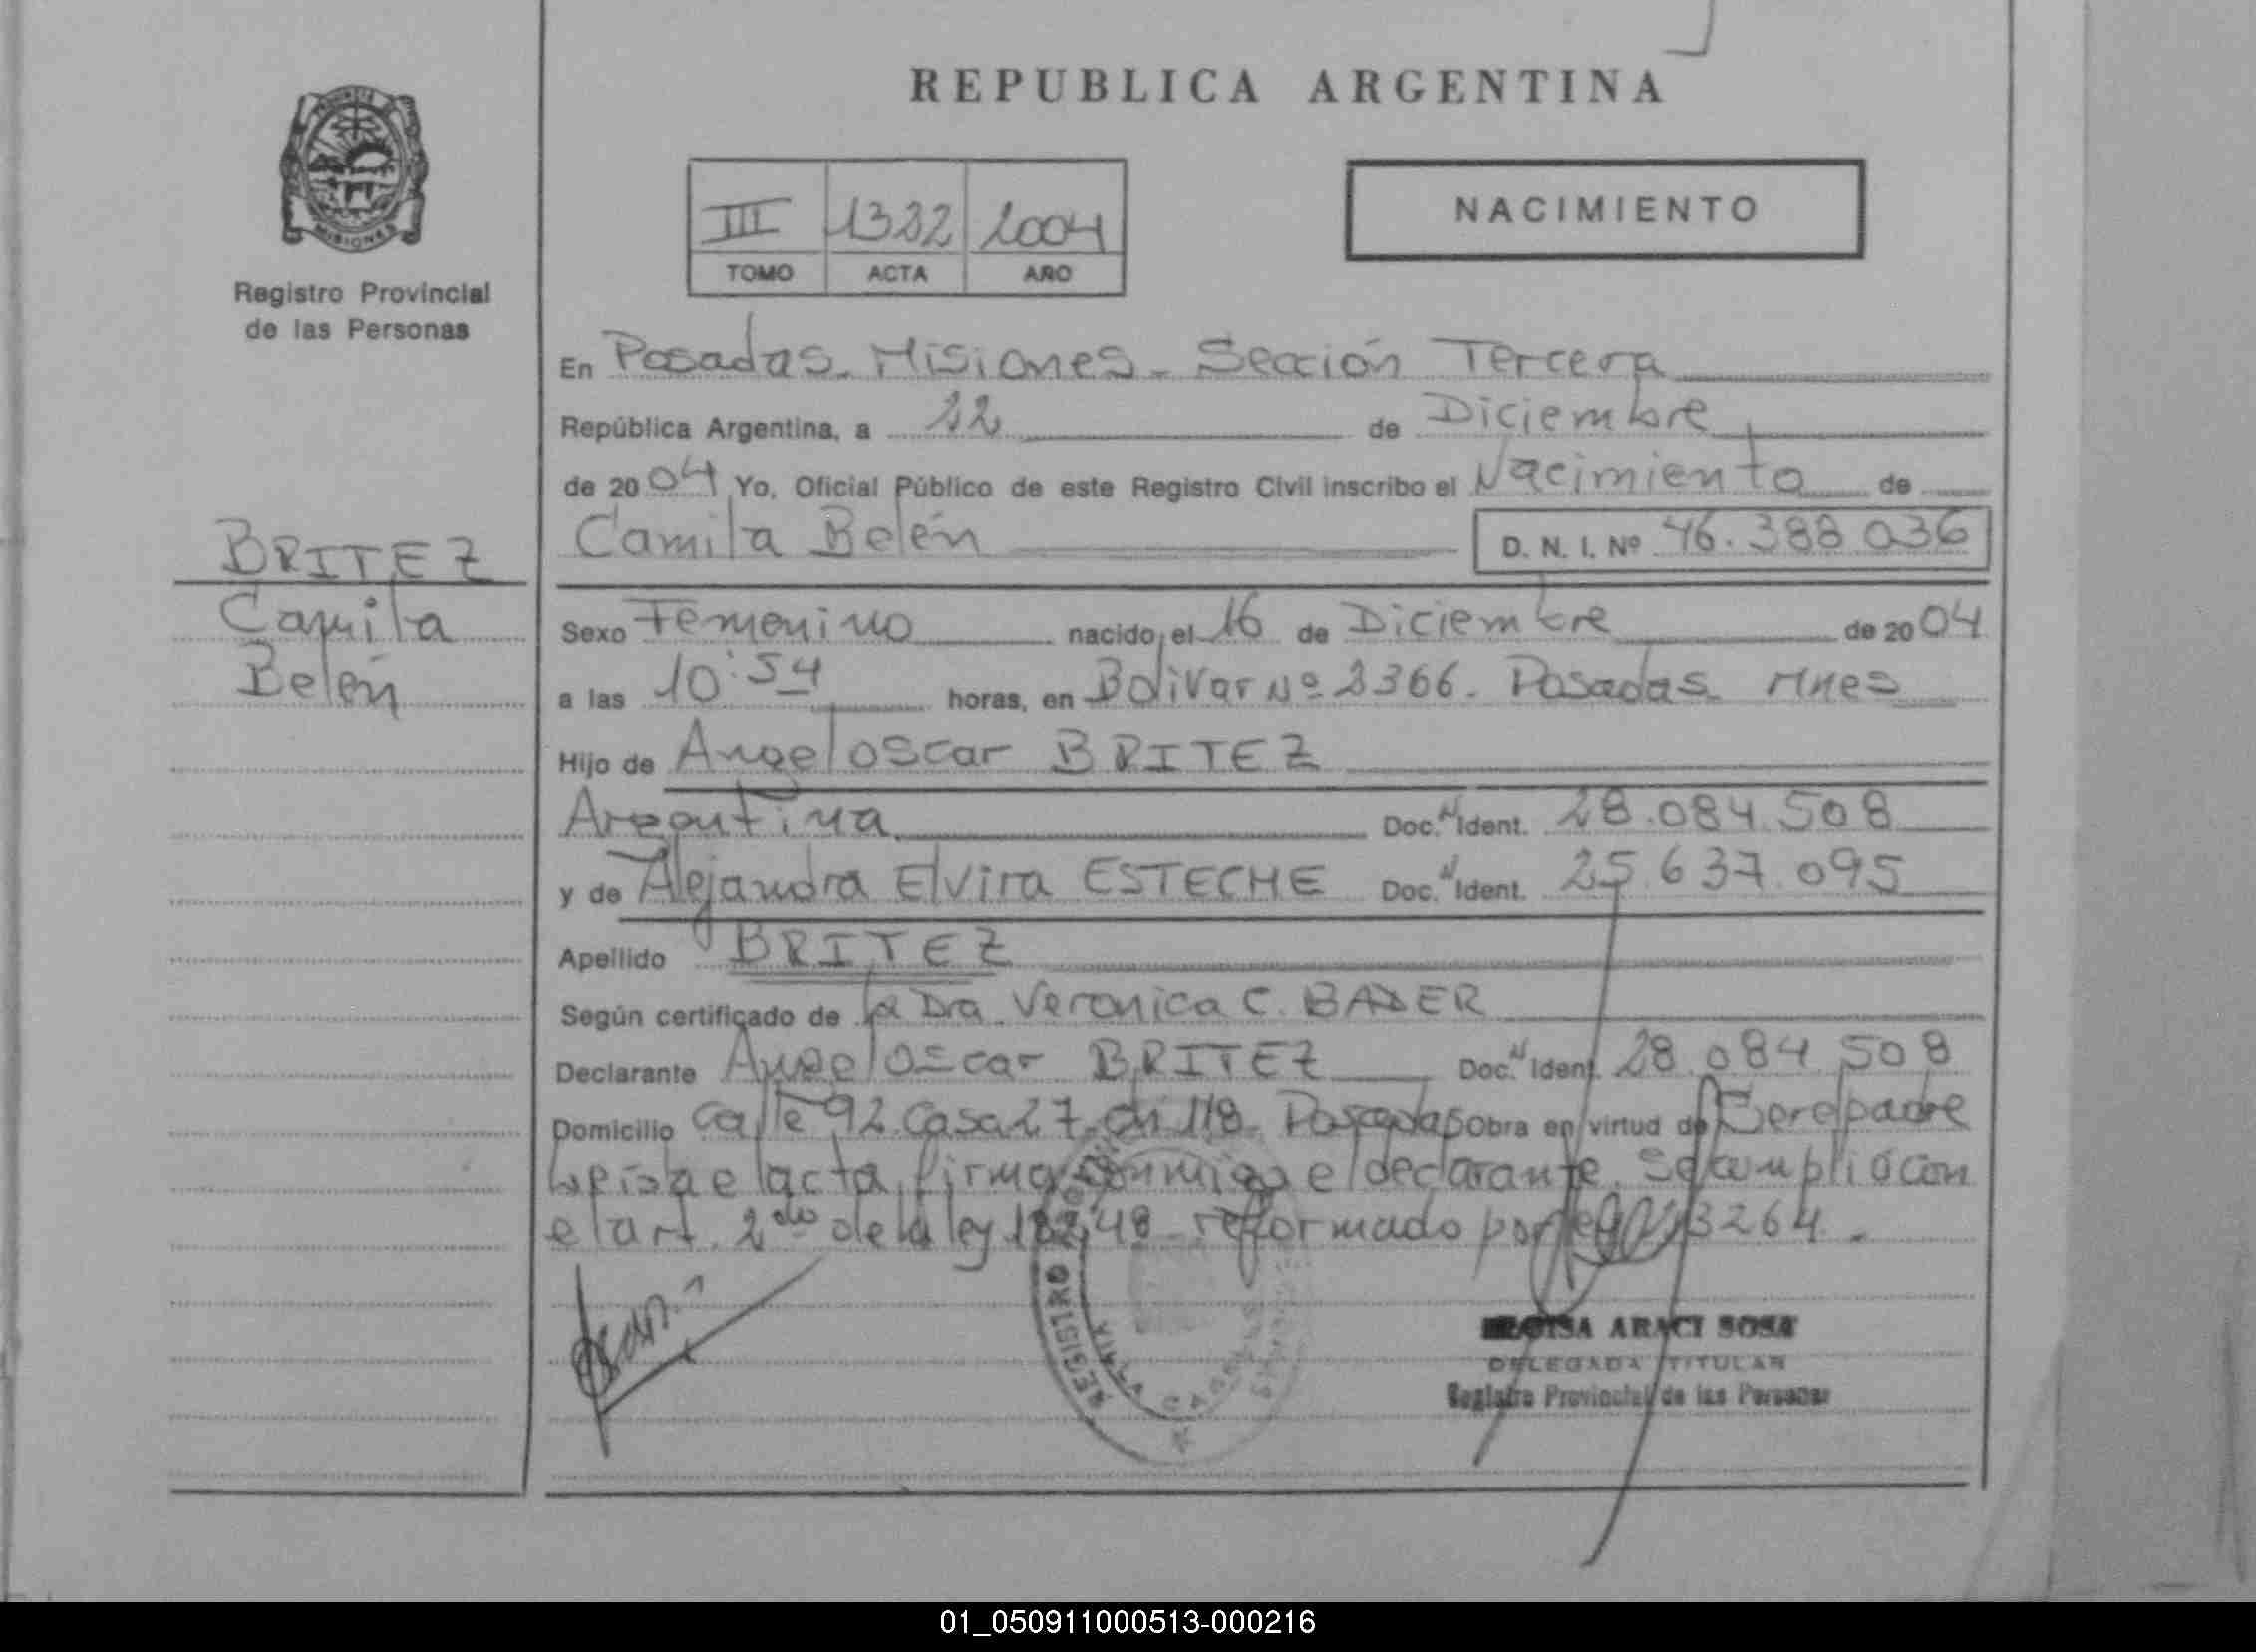 REPUBLICA ARGENTINA
MISIONES
Registro Provincial
de las Personas
III 1322 2004
TOMO ACTA AÑO
NACIMIENTO
En Posadas. Misiones. Sección Tercera
República Argentina, a 22 de Diciembre
de 2004 Yo, Oficial Público de este Registro Civil inscribo el Nacimiento de
BRITEZ
Camila
Belén
Camila Belén D. N. I. Nº 46.388 036
Sexo Femenino nacido el 16 de Diciembre de 2004
a las 10:54 horas, en Bolivar Nº 2366. Posadas. Mnes
Hijo de Angel Oscar BRITEZ
Argentina Doc. N Ident. 28.084.508
y de Alejandra Elvira ESTECHE Doc. N Ident. 25.637.095
Apellido BRITEZ
Según certificado de la Dra. Veronica C. BADER
Declarante Angel Oscar BRITEZ Doc. N Ident. 28.084.508
Domicilio Calle 92 Casa 27 Ch 118 Posadas Obra en virtud de Ser el padre
Leída el acta, firma conmigo el declarante. Se cumplió con
el art. 2do de la ley 18248 reformado por 23264.
ARACI SOSA
DELEGADA TITULAR
Registro Provincial de las Personas
REGISTRO
01_050911000513-000216